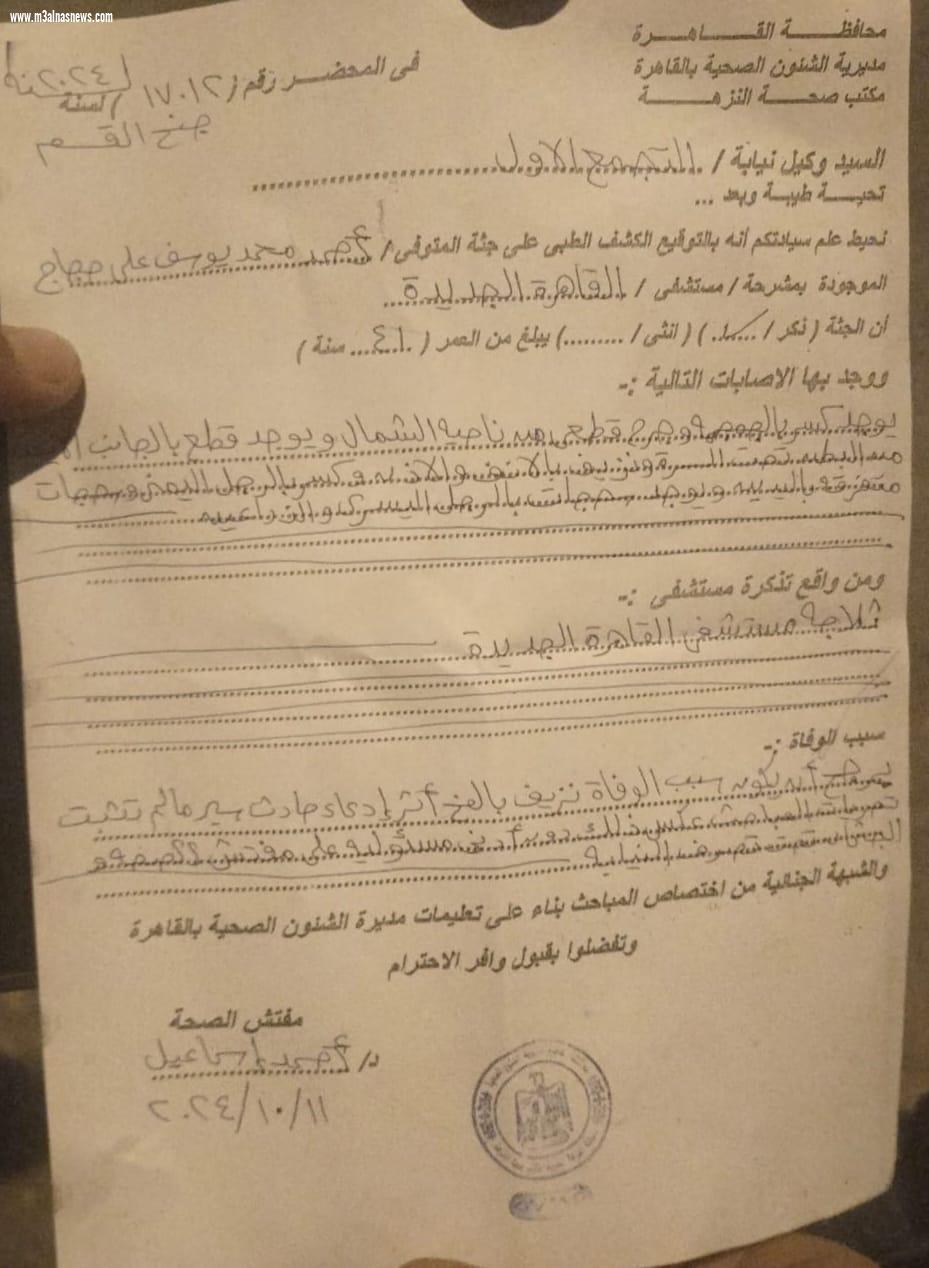 www.m3alnasnews.com
محافظة القاهرة
مديرية الشئون الصحية بالقاهرة
مكتب صحة النزهة
فى المحضر رقم / ١٧٠١٢ / لسنة ٢٠٢٤
جنح القسم
السيد وكيل نيابة / التجمع الاول
تحية طيبة وبعد ...
نحيط علم سيادتكم أنه بالتوقيع الكشف الطبى على جثة المتوفى / أحمد محمد يوسف على حجاج
الموجودة بمشرحة / مستشفى / القاهرة الجديدة
أن الجثة ( ذكر / ....... ) ( انثى / ......... ) يبلغ من العمر ( ٤١ سنة )
ووجد بها الاصابات التالية :-
يوجد كسر وجرح قطعى ناحية الشمال ويوجد قطع بالجانب
من البطن تحت السرة ونزيف بالانف والاذن وكسر بالرجل اليمنى وسحجات
متفرقة ويوجد سحجات بالرجل اليسرى
ومن واقع تذكرة مستشفى :-
ثلاجة مستشفى القاهرة الجديدة
سبب الوفاة :-
يرجح أن يكون سبب الوفاة نزيف بالمخ أثر إدعاء حادث سير مالم تثبت
تحريات المباحث عكس ذلك دون أدنى مسئولية على مفتش الصحة و
النيابة
والشبهة الجنائية من اختصاص المباحث بناء على تعليمات مديرة الشئون الصحية بالقاهرة
وتفضلوا بقبول وافر الاحترام
مفتش الصحة
د / أحمد إسماعيل
٢٠٢٤/١٠/١١